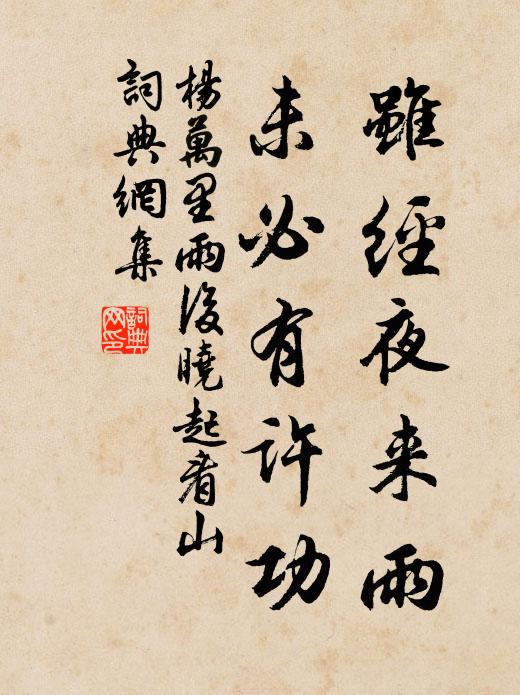 雖經夜来雨
未必有許功
楊萬里雨後曉起看山
詞典網集
詞典网印